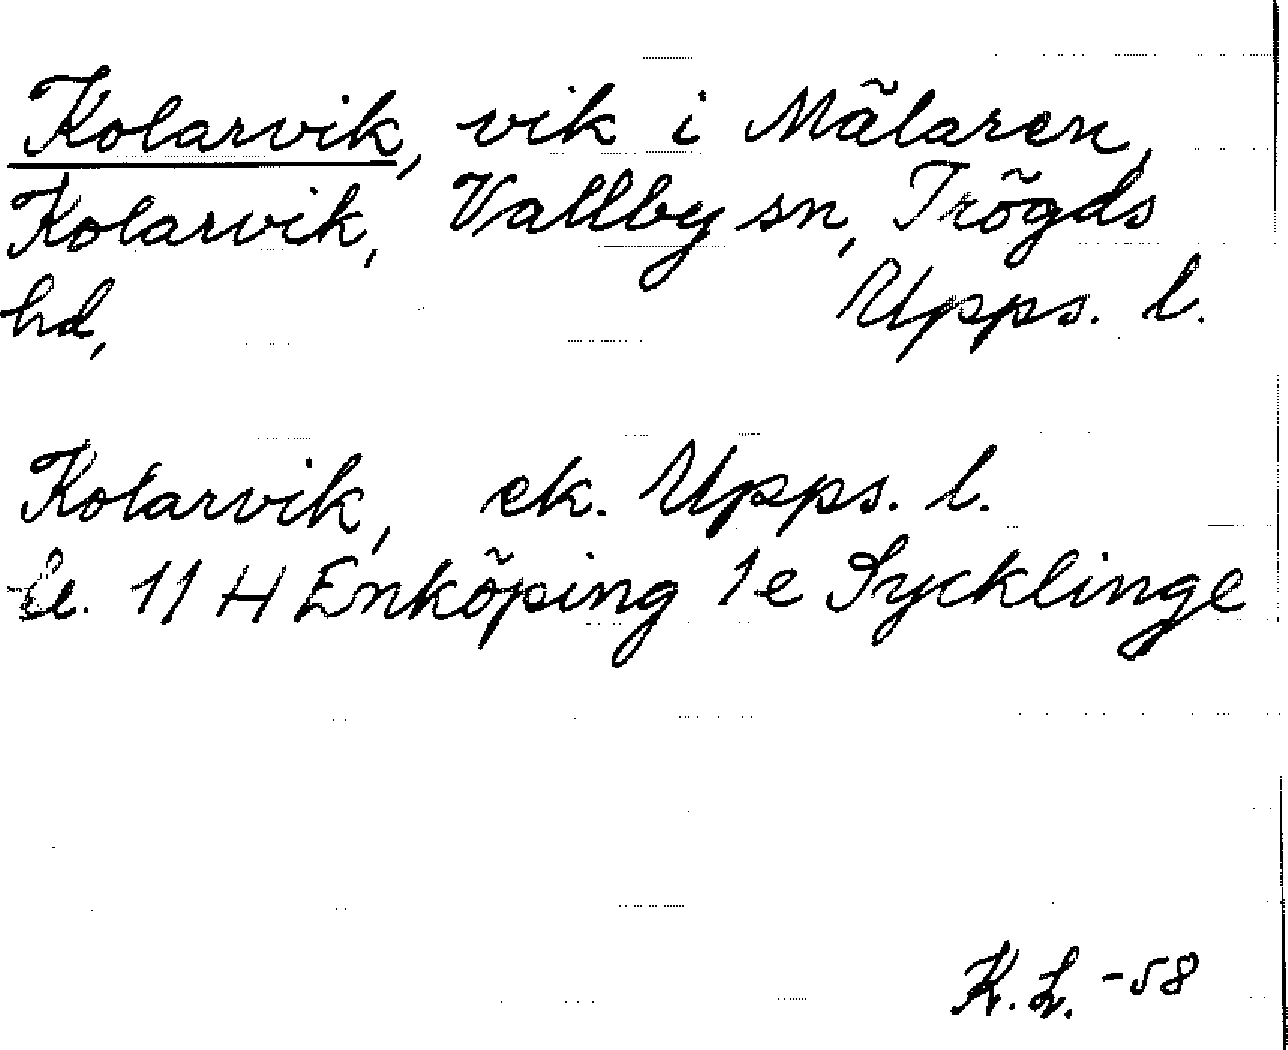 Kolarvik, vik i Mälaren,
Kolarvik, Vallby sn, Trögds
hd, Upps. l.
Kolarvik, ek. Upps. l.
bl. 11 H Enköping 1e Sycklinge
K. L. -58